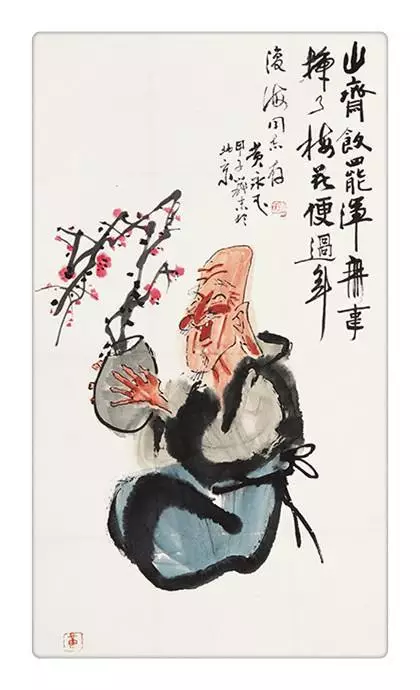 山齋飲罷渾無事
插了梅花便過年
海同志存
黄永玉
甲子 末於
北京
黄